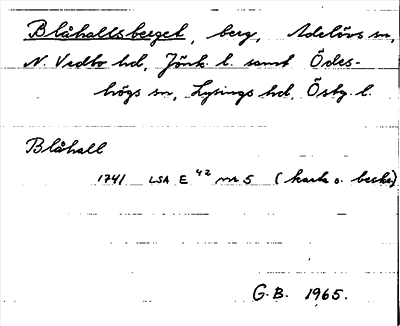 Blåhallsberget, berg, Adelövs sn,
N. Vedbo hd, Jönk. l. samt Ödes-
högs sn, Lysings hd, Östg. l.
Blåhall
1741 LSA E 42 nr 5 (karta o. beskr)
G.B. 1965.